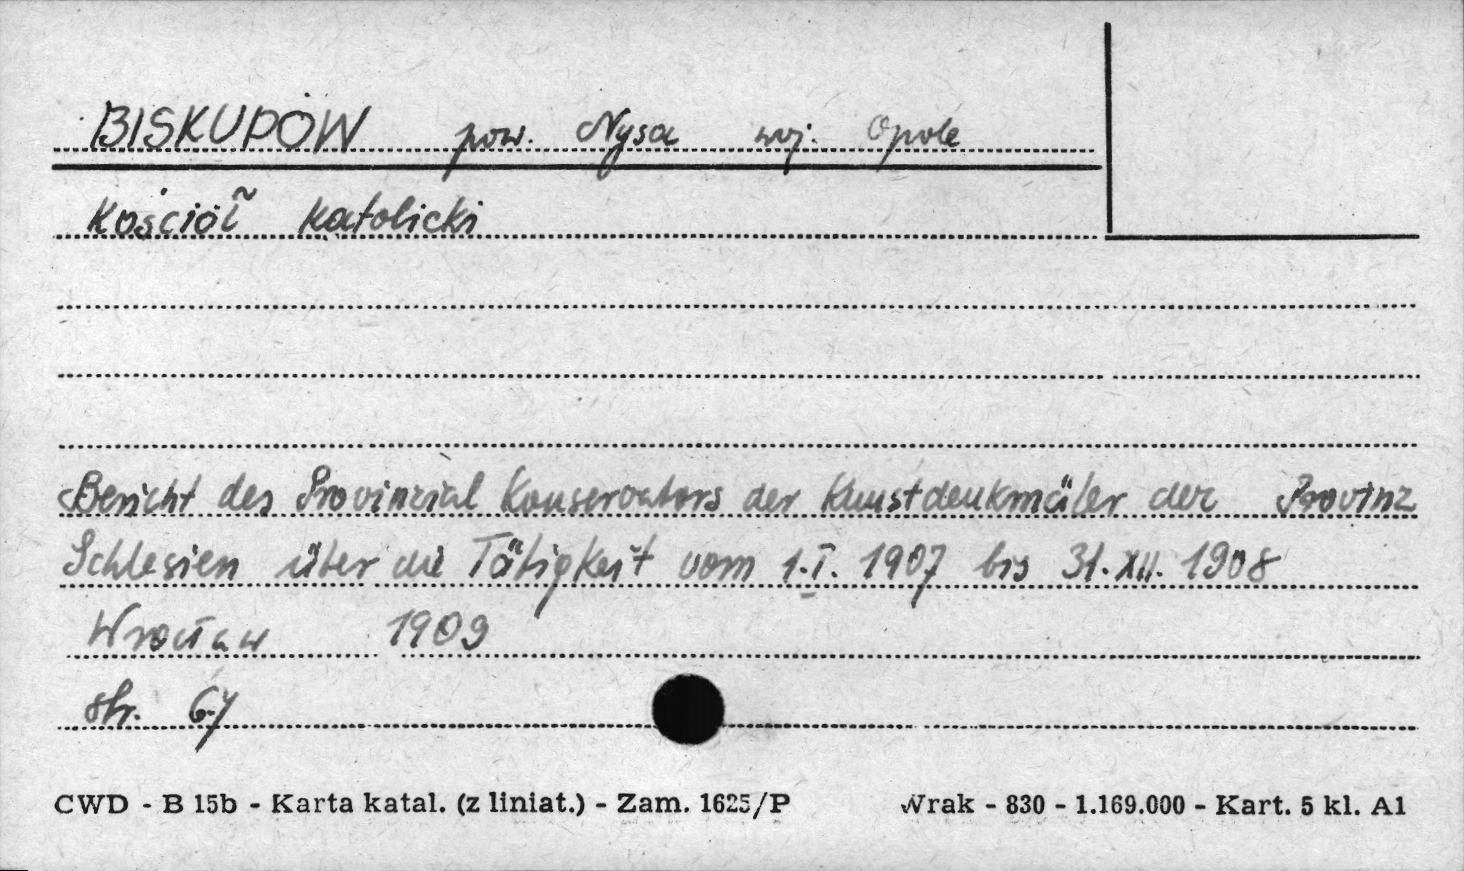 BISKUPÓW pow. Nysa woj. Opole
Kościół katolicki
Bericht des Provinzial Konservators der Kunstdenkmäler der Provinz
Schlesien über die Tätigkeit vom 1.I. 1907 bis 31.XII. 1908
Wrocław 1909
str. 67
CWD - B 15b - Karta katal. (z liniat.) - Zam. 1625/P Wrak - 830 - 1.169.000 - Kart. 5 kl. A1